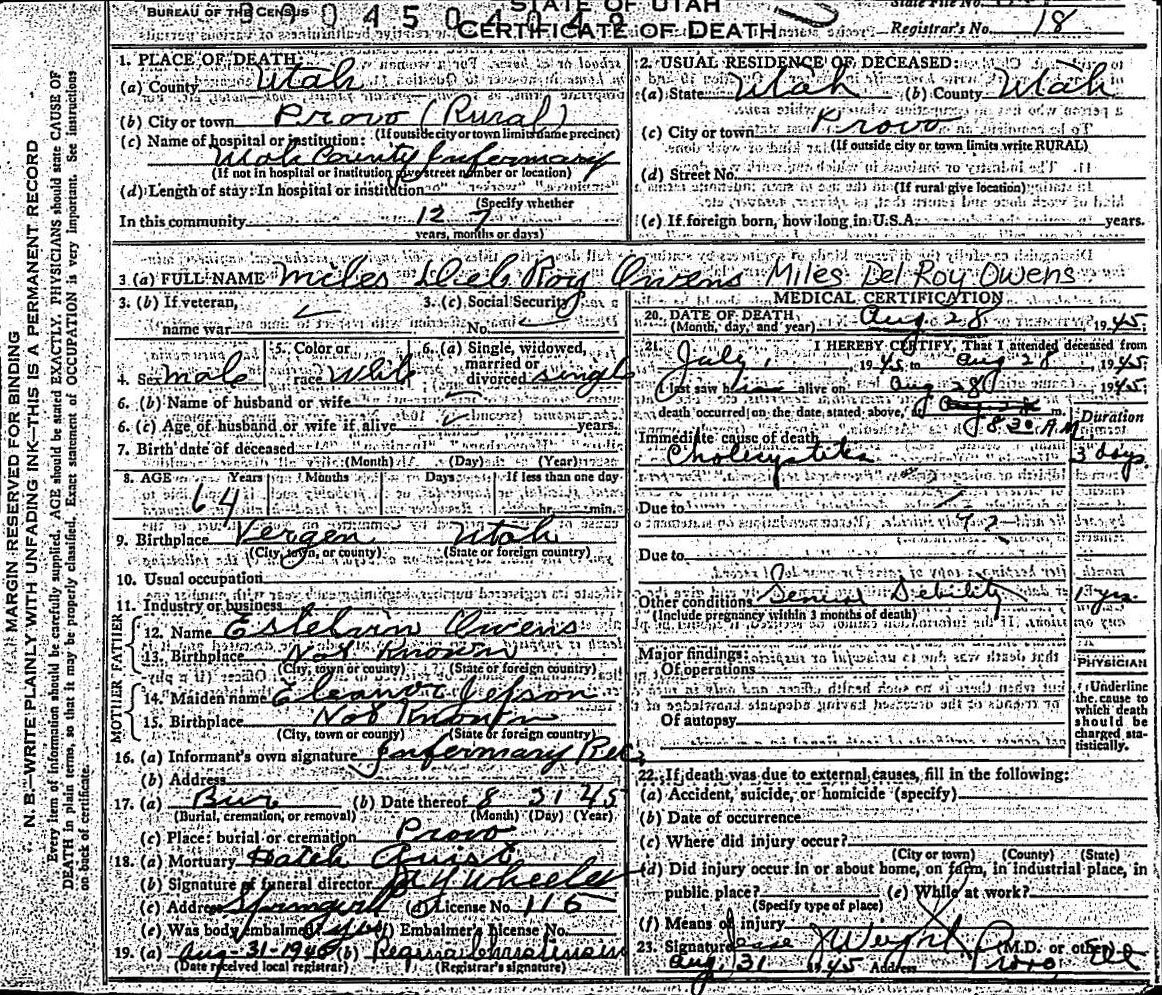 BUREAU OF THE CENSUS
STATE OF UTAH
CERTIFICATE OF DEATH
State File No.
Registrar's No. 18
MARGIN RESERVED FOR BINDING
N. B.—WRITE PLAINLY WITH UNFADING INK—THIS IS A PERMANENT RECORD
Every item of information should be carefully supplied. AGE should be stated EXACTLY. PHYSICIANS should state CAUSE OF
DEATH in plain terms, so that it may be properly classified. Exact statement of OCCUPATION is very important. See instructions
on back of certificate.
1. PLACE OF DEATH:
(a) County Utah
(b) City or town Provo (Rural)
(If outside city or town limits name precinct)
(c) Name of hospital or institution:
Utah County Infermary
(If not in hospital or institution give street number or location)
(d) Length of stay: In hospital or institution
(Specify whether
In this community 12 7
years, months or days)
2. USUAL RESIDENCE OF DECEASED:
(a) State Utah (b) County Utah
(c) City or town Provo
(If outside city or town limits write RURAL)
(d) Street No.
(If rural give location)
(e) If foreign born, how long in U.S.A. years.
3 (a) FULL NAME Miles Del Roy Owens Miles Del Roy Owens
3. (b) If veteran,
name war
3. (c) Social Security
No.
4. Sex male
5. Color or
race White
6. (a) Single, widowed,
married or
divorced single
6. (b) Name of husband or wife
6. (c) Age of husband or wife if alive years.
7. Birth date of deceased
(Month) (Day) (Year)
8. AGE Years Months Days If less than one day
64 hr. min.
9. Birthplace Vergen Utah
(City, town, or county) (State or foreign country)
10. Usual occupation
11. Industry or business
FATHER
12. Name Owens
13. Birthplace Not Known
(City, town or county) (State or foreign country)
MOTHER
14. Maiden name Eleanor Jefson
15. Birthplace Not Known
(City, town or county) (State or foreign country)
16. (a) Informant's own signature Infermary Rec
(b) Address
17. (a) Bur (b) Date thereof 8 31 45
(Burial, cremation, or removal) (Month) (Day) (Year)
(c) Place: burial or cremation Provo
18. (a) Mortuary
(b) Signature of funeral director Wheeler
(c) Address (d) License No. 116
(e) Was body embalmed? yes (f) Embalmer's License No.
19. (a) Aug-31-1945 (b) Regina Christensen
(Date received local registrar) (Registrar's signature)
MEDICAL CERTIFICATION
20. DATE OF DEATH Aug 28 1945
(Month, day, and year)
21. I HEREBY CERTIFY, That I attended deceased from
July 1, 1945 to Aug 28, 1945
I last saw him alive on Aug 28 1945
death occurred on the date stated above, at m.
8 30 A.M.
Duration
Immediate cause of death
Cholecystites 3 days
Due to
Due to
Other conditions Debility 1 yr
(Include pregnancy within 3 months of death)
Major findings:
Of operations
Of autopsy
PHYSICIAN
Underline
the cause to
which death
should be
charged sta-
tistically.
22. If death was due to external causes, fill in the following:
(a) Accident, suicide, or homicide (specify)
(b) Date of occurrence
(c) Where did injury occur?
(City or town) (County) (State)
(d) Did injury occur in or about home, on farm, in industrial place, in
public place? (e) While at work?
(Specify type of place)
(f) Means of injury
23. Signature J Weight (M.D. or other)
Aug 31 1945 Address Provo